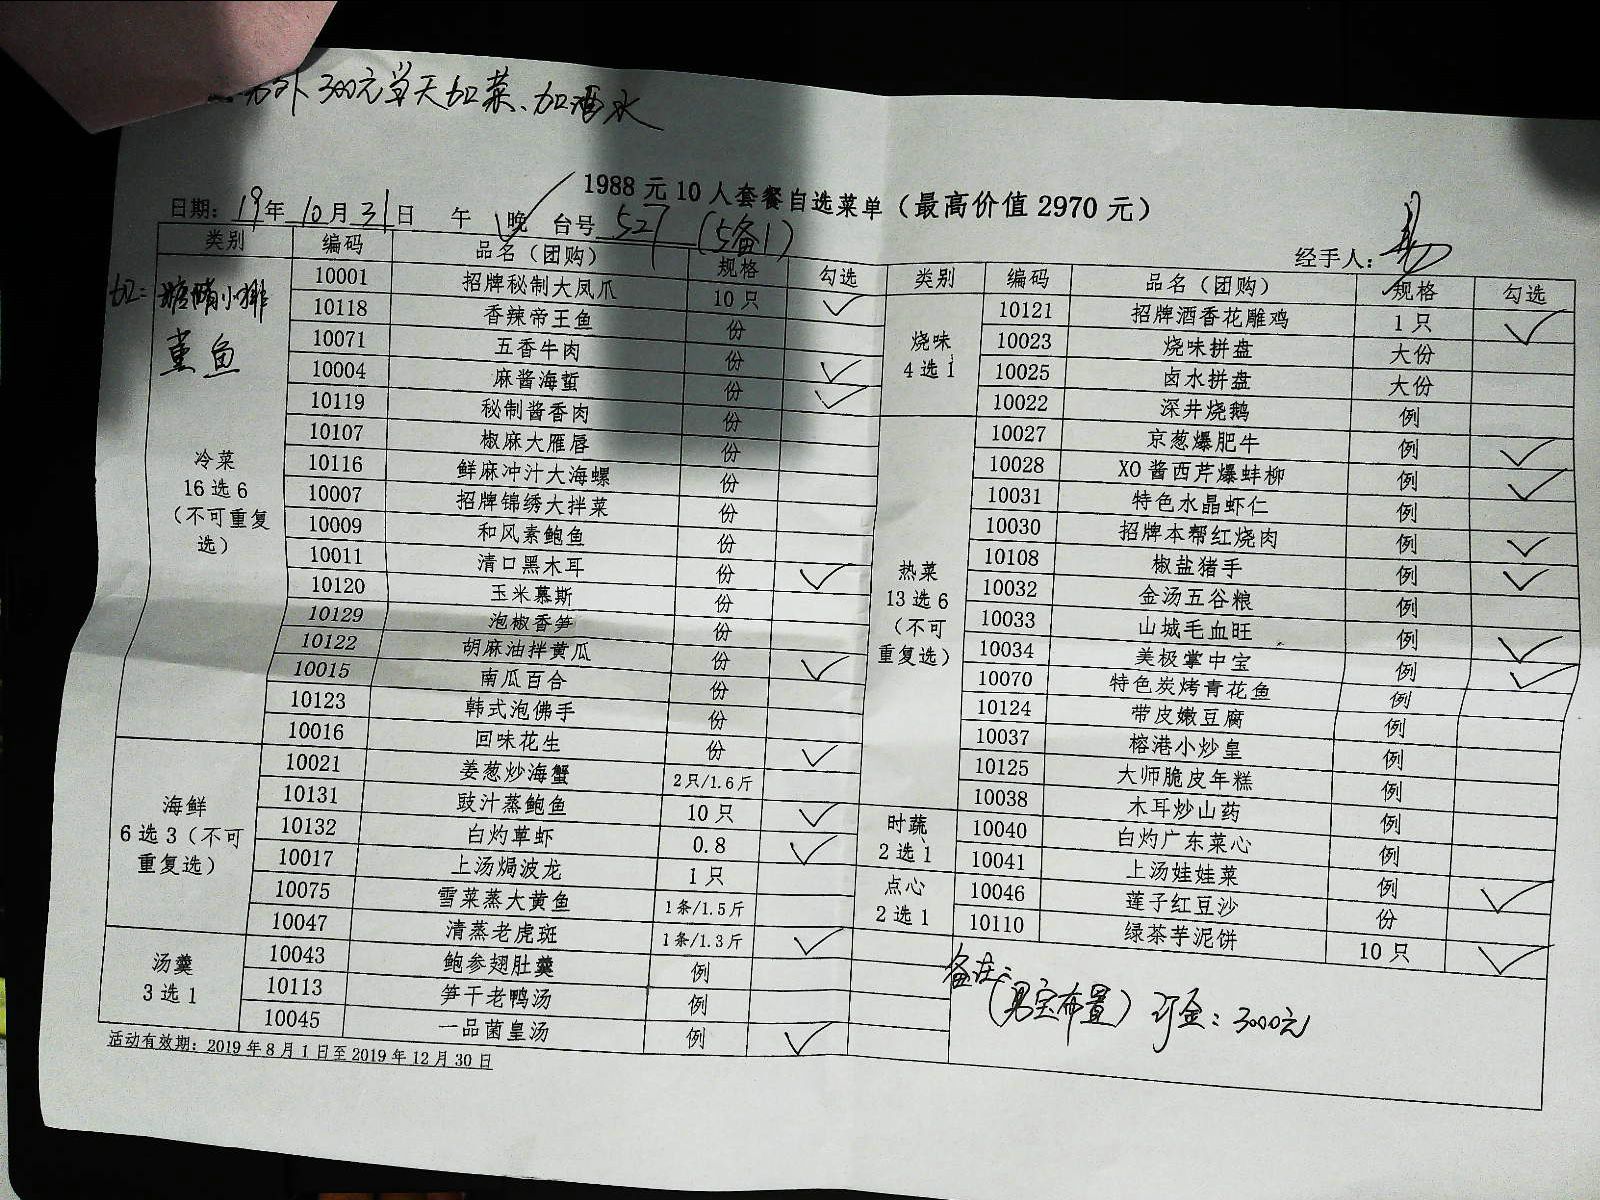 另外 3000元 单天加菜、加酒水
1988 元 10 人套餐自选菜单（最高价值 2970 元）
日期：19年10月31日 午 晚 台号 527 (5备1) 经手人：
类别 编码 品名（团购） 规格 勾选
加：糖醋小排
熏鱼
冷菜
16 选 6
（不可重复
选）
10001 招牌秘制大凤爪 10 只 ✓
10118 香辣帝王鱼 份
10071 五香牛肉 份 ✓
10004 麻酱海蜇 份 ✓
10119 秘制酱香肉 份
10107 椒麻大雁唇 份
10116 鲜麻冲汁大海螺 份
10007 招牌锦绣大拌菜 份
10009 和风素鲍鱼 份
10011 清口黑木耳 份 ✓
10120 玉米慕斯 份
10129 泡椒香笋 份
10122 胡麻油拌黄瓜 份 ✓
10015 南瓜百合 份
10123 韩式泡佛手 份
10016 回味花生 份 ✓
海鲜
6 选 3（不可
重复选）
10021 姜葱炒海蟹 2 只/1.6 斤
10131 豉汁蒸鲍鱼 10 只 ✓
10132 白灼草虾 0.8 ✓
10017 上汤焗波龙 1 只
10075 雪菜蒸大黄鱼 1 条/1.5 斤
10047 清蒸老虎斑 1 条/1.3 斤 ✓
汤羹
3 选 1
10043 鲍参翅肚羹 例
10113 笋干老鸭汤 例
10045 一品菌皇汤 例 ✓
活动有效期：2019 年 8 月 1 日至 2019 年 12 月 30 日
类别 编码 品名（团购） 规格 勾选
烧味
4 选 1
10121 招牌酒香花雕鸡 1 只 ✓
10023 烧味拼盘 大份
10025 卤水拼盘 大份
10022 深井烧鹅 例
热菜
13 选 6
（不可
重复选）
10027 京葱爆肥牛 例 ✓
10028 XO 酱西芹爆蚌柳 例 ✓
10031 特色水晶虾仁 例
10030 招牌本帮红烧肉 例 ✓
10108 椒盐猪手 例 ✓
10032 金汤五谷粮 例
10033 山城毛血旺 例 ✓
10034 美极掌中宝 例 ✓
10070 特色炭烤青花鱼 例
10124 带皮嫩豆腐 例
10037 榕港小炒皇 例
10125 大师脆皮年糕 例
10038 木耳炒山药 例
时蔬
2 选 1
10040 白灼广东菜心 例
10041 上汤娃娃菜 例 ✓
点心
2 选 1
10046 莲子红豆沙 份
10110 绿茶芋泥饼 10 只 ✓
备注：
（男宝布置）订金：3000元